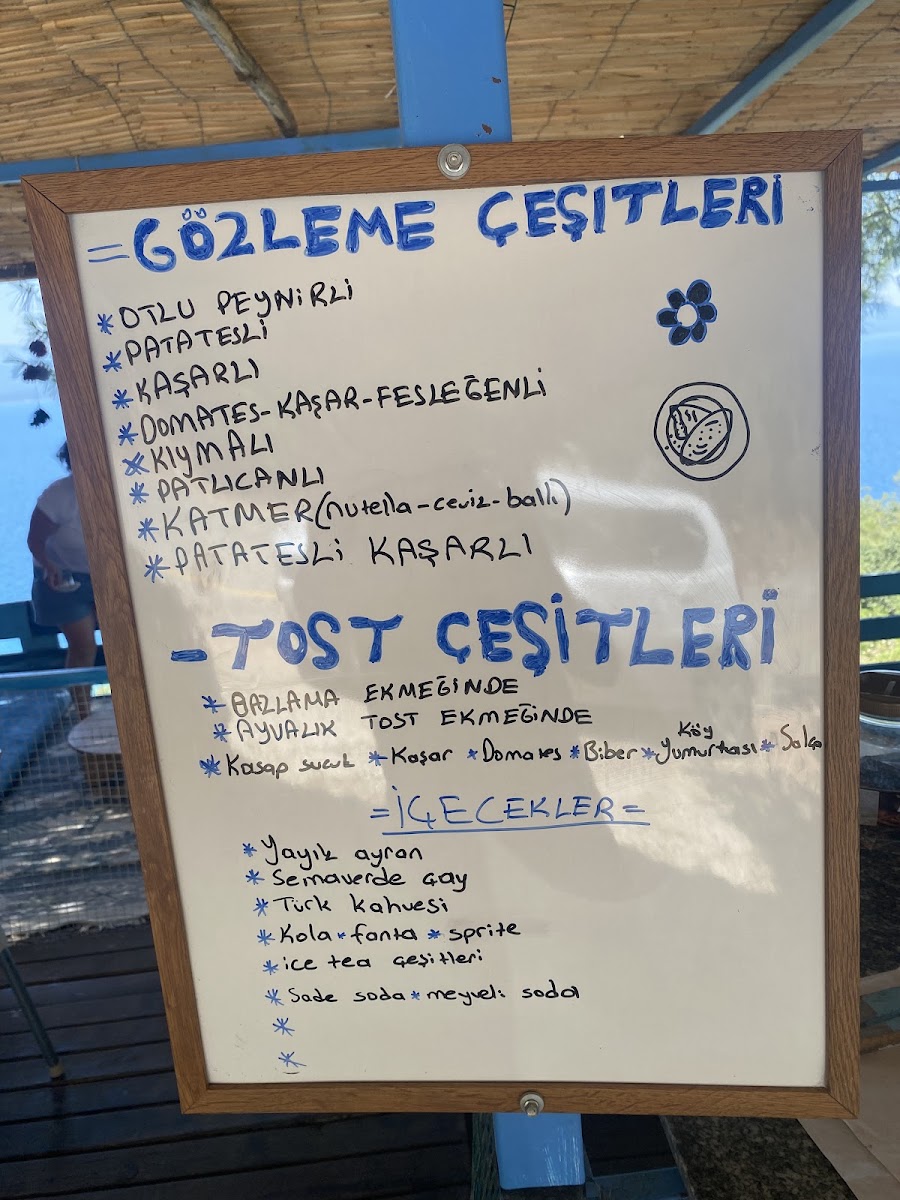 =GÖZLEME ÇEŞİTLERİ
*OTLU PEYNİRLİ
*PATATESLİ
*KAŞARLI
*DOMATES-KAŞAR-FESLEĞENLİ
*KIYMALI
*PATLICANLI
*KATMER(nutella-ceviz-ballı)
*PATATESLİ KAŞARLI
-TOST ÇEŞİTLERİ
*BAZLAMA EKMEĞİNDE
*AYVALIK TOST EKMEĞİNDE
*Kasap sucuk *Kaşar *Domates *Biber *Köy Yumurtası *Salça
=İÇECEKLER=
*Yayık ayran
*Semaverde çay
*Türk kahvesi
*Kola*fanta*sprite
*ice tea çeşitleri
*Sade soda*meyveli soda
*
*